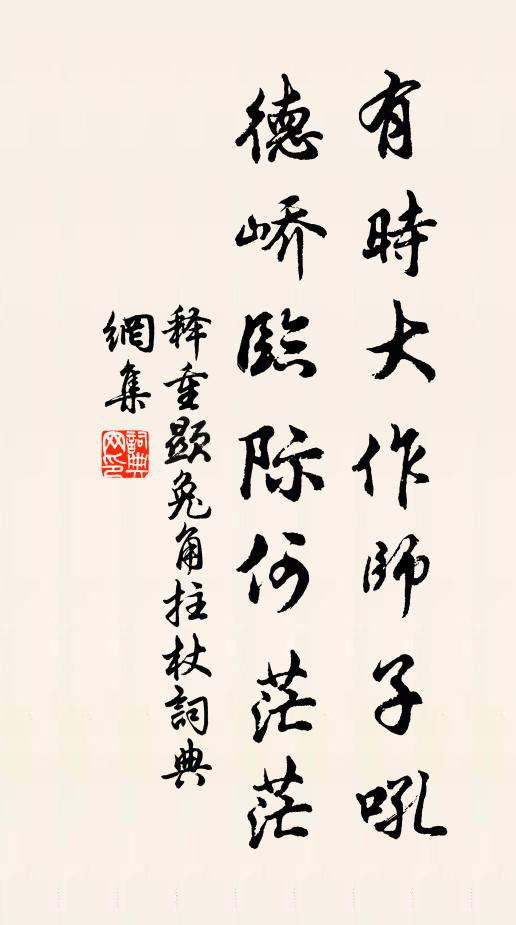 有時大作師子吼
德嶠臨际何茫茫
释重顯兔角拄杖詞典
網集
詞典網印